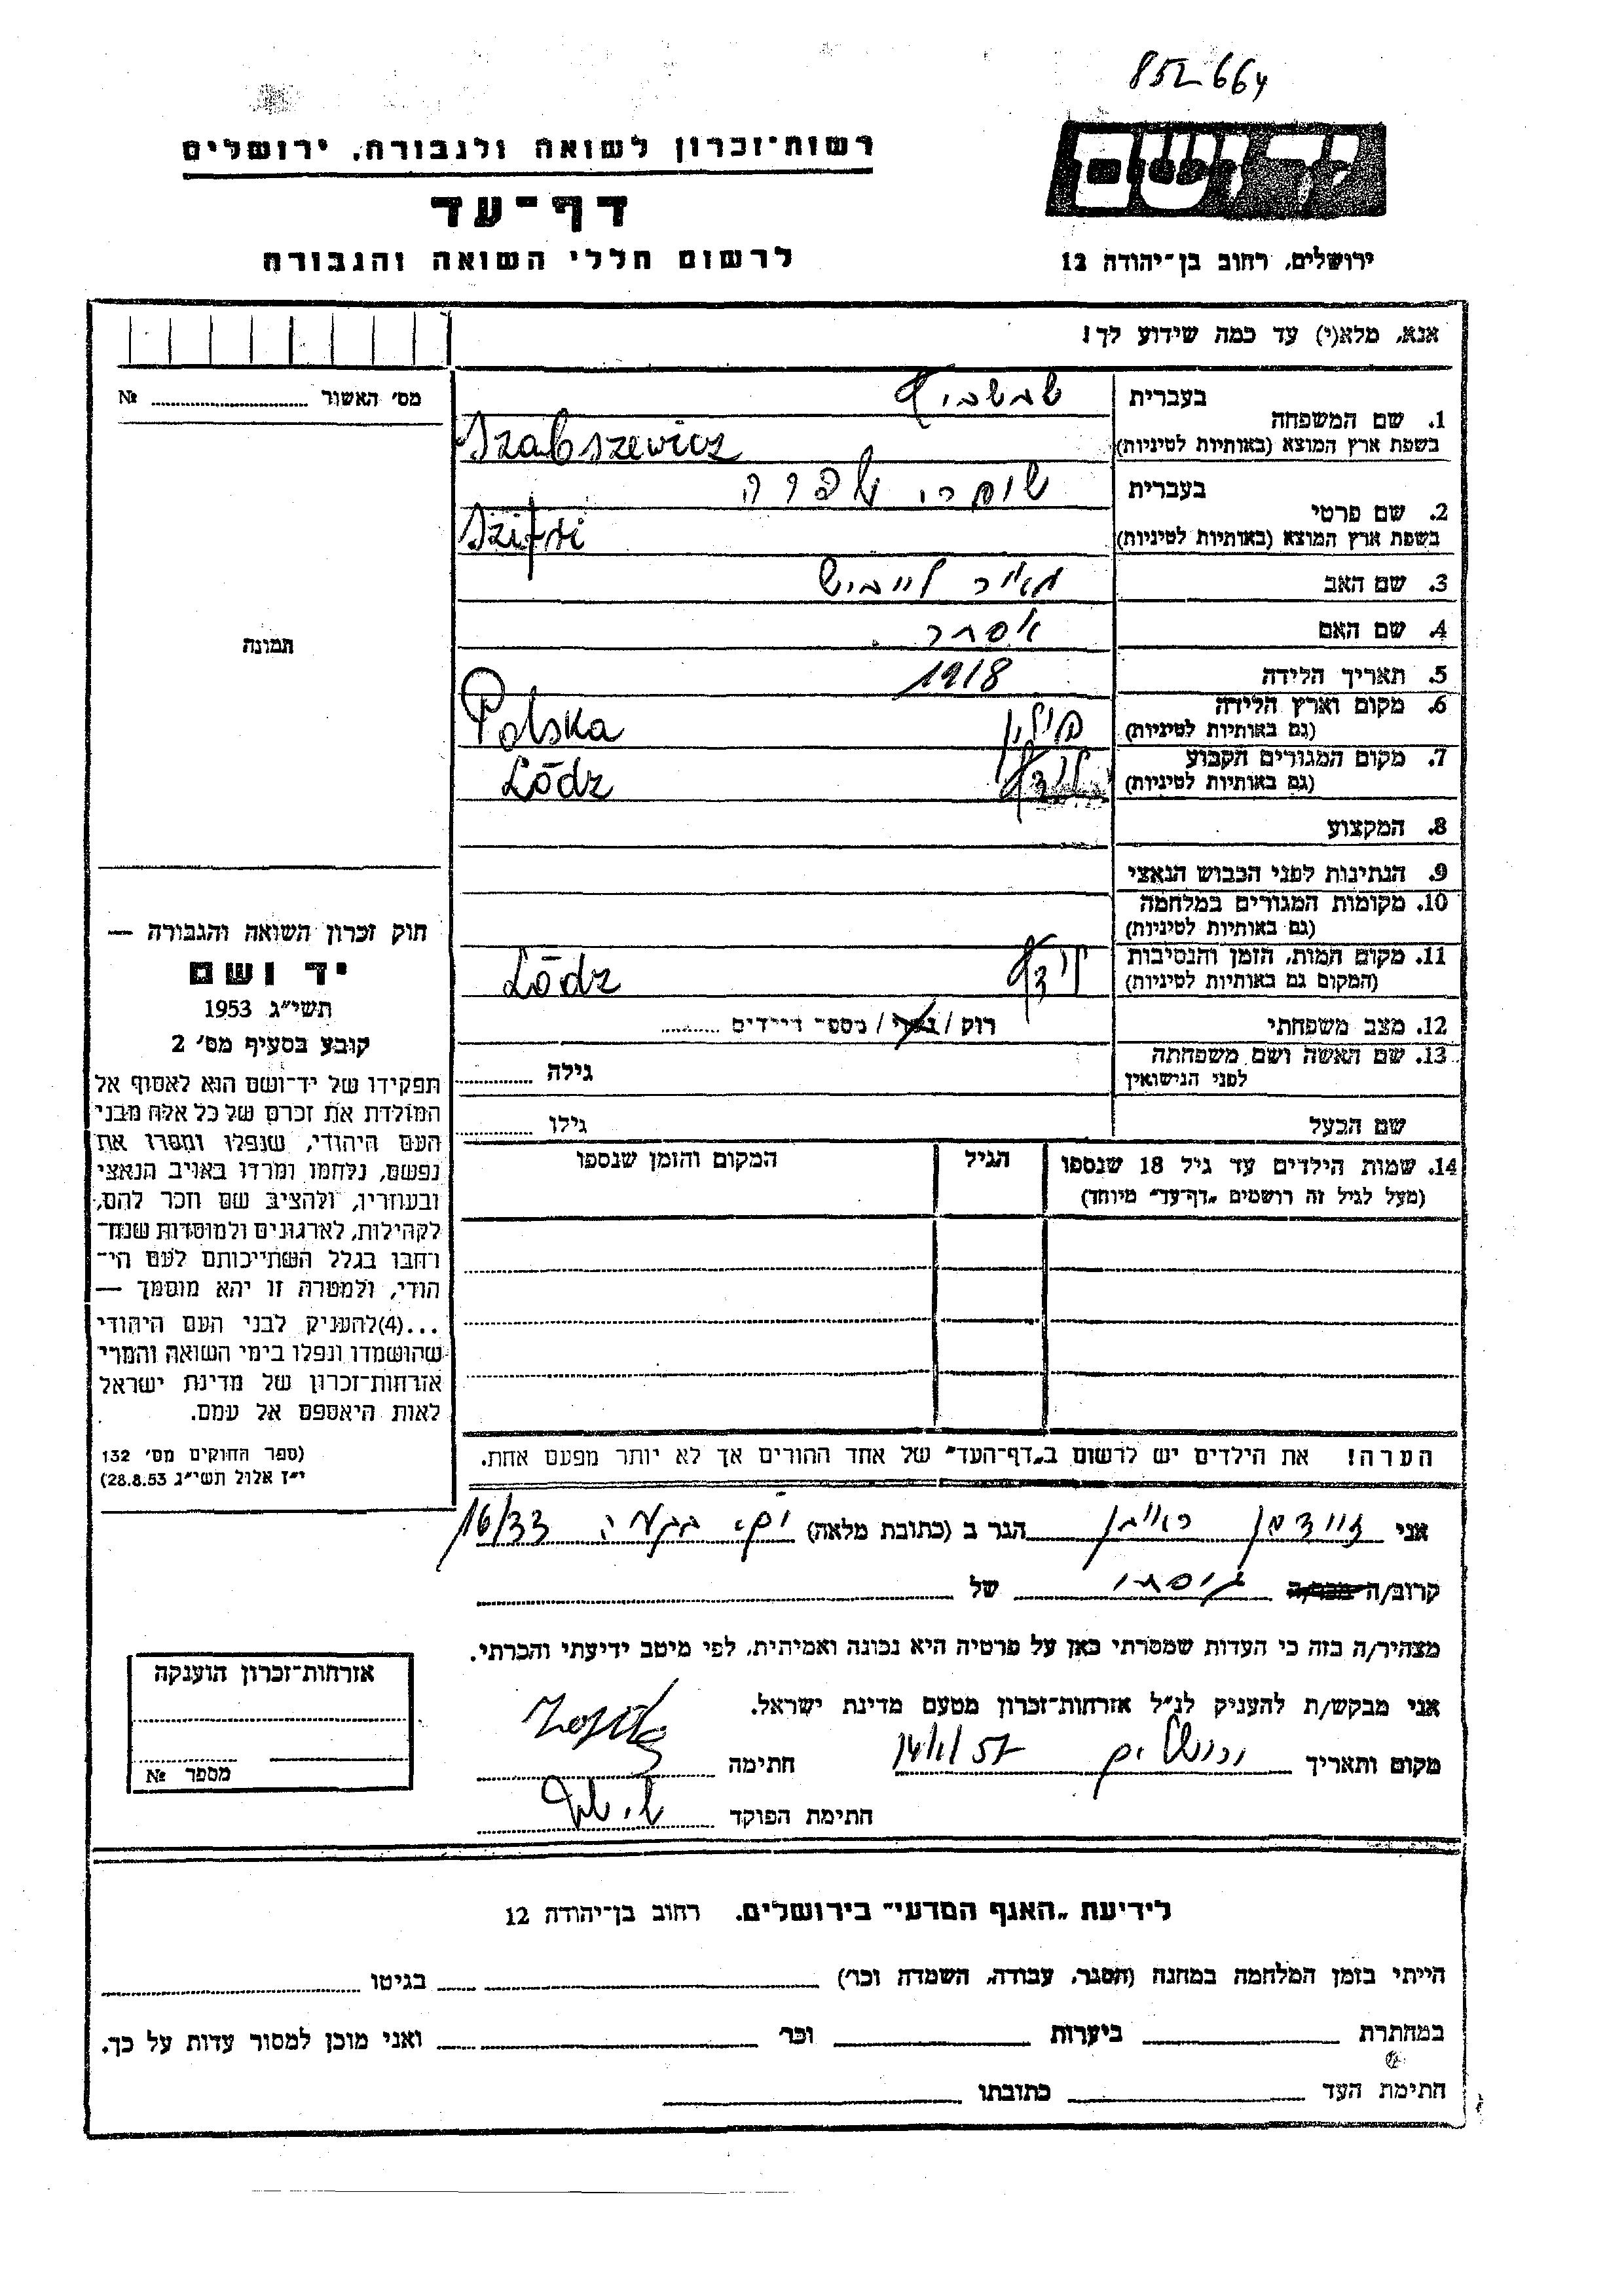 852664
יד ושם
רשות־זכרון לשואה ולגבורה, ירושלים
דף־עד
לרשום חללי השואה והגבורה
ירושלים, רחוב בן־יהודה 12
אנא, מלא(י) עד כמה שידוע לך!
מס׳ האשור № ..........
1. שם המשפחה
בעברית
Szabszewicz
בשפת ארץ המוצא (באותיות לטיניות)
2. שם פרטי
בעברית שפרה
בשפת ארץ המוצא (באותיות לטיניות)
3. שם האב מאיר לייביש
4. שם האם אסתר
5. תאריך הלידה 1918
6. מקום וארץ הלידה פולין Polska
(גם באותיות לטיניות)
7. מקום המגורים הקבוע לודז׳ Lódz
(גם באותיות לטיניות)
8. המקצוע
9. הנתינות לפני הכבוש הנאצי
10. מקומות המגורים במלחמה
(גם באותיות לטיניות)
11. מקום המות, הזמן והנסיבות לודז׳ Lódz
(המקום גם באותיות לטיניות)
12. מצב משפחתי רוק / נשוי / מספר הילדים ..........
13. שם האשה ושם משפחתה
לפני הנישואין
גילה ..........
שם הבעל גילו ..........
14. שמות הילדים עד גיל 18 שנספו
(מעל לגיל זה רושמים „דף־עד״ מיוחד)
הגיל
המקום והזמן שנספו
הערה! את הילדים יש לרשום ב„דף־העד״ של אחד ההורים אך לא יותר מפעם אחת.
תמונה
חוק זכרון השואה והגבורה —
יד ושם
תשי״ג 1953
קובע בסעיף מס׳ 2
תפקידו של יד־ושם הוא לאסוף אל
המולדת את זכרם של כל אלה מבני
העם היהודי, שנפלו ומסרו את
נפשם, נלחמו ומרדו באויב הנאצי
ובעוזריו, ולהציב שם וזכר להם,
לקהילות, לארגונים ולמוסדות שנח־
רחבו בגלל השתייכותם לעם הי־
הודי, ולמטרה זו יהא מוסמך —
...(4)להעניק לבני העם היהודי
שהושמדו ונפלו בימי השואה והמרי
אזרחות־זכרון של מדינת ישראל
לאות היאספם אל עמם.
(ספר החוקים מס׳ 132
י״ז אלול תשי״ג 28.8.53)
אני זיידמן ראובן הגר ב (כתובת מלאה) 16/33
קרוב/ה מכר/ה של
מצהיר/ה בזה כי העדות שמסרתי כאן על פרטיה היא נכונה ואמיתית, לפי מיטב ידיעתי והכרתי.
אני מבקש/ת להעניק לנ״ל אזרחות־זכרון מטעם מדינת ישראל.
מקום ותאריך ירושלים 14/1/57 חתימה
חתימת הפוקד
אזרחות־זכרון הוענקה
מספר №
לידיעת „האגף המדעי״ בירושלים, רחוב בן־יהודה 12
הייתי בזמן המלחמה במחנה (הסגר, עבודה, השמדה וכו׳) בגיטו
במחתרת ביערות וכו׳ ואני מוכן למסור עדות על כך.
חתימת העד כתובתו